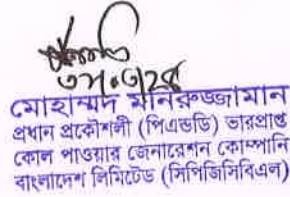 মোহাম্মদ মনিরুজ্জামান
প্রধান প্রকৌশলী (পিএন্ডডি) ভারপ্রাপ্ত
কোল পাওয়ার জেনারেশন কোম্পানি
বাংলাদেশ লিমিটেড (সিপিজিসিবিএল)